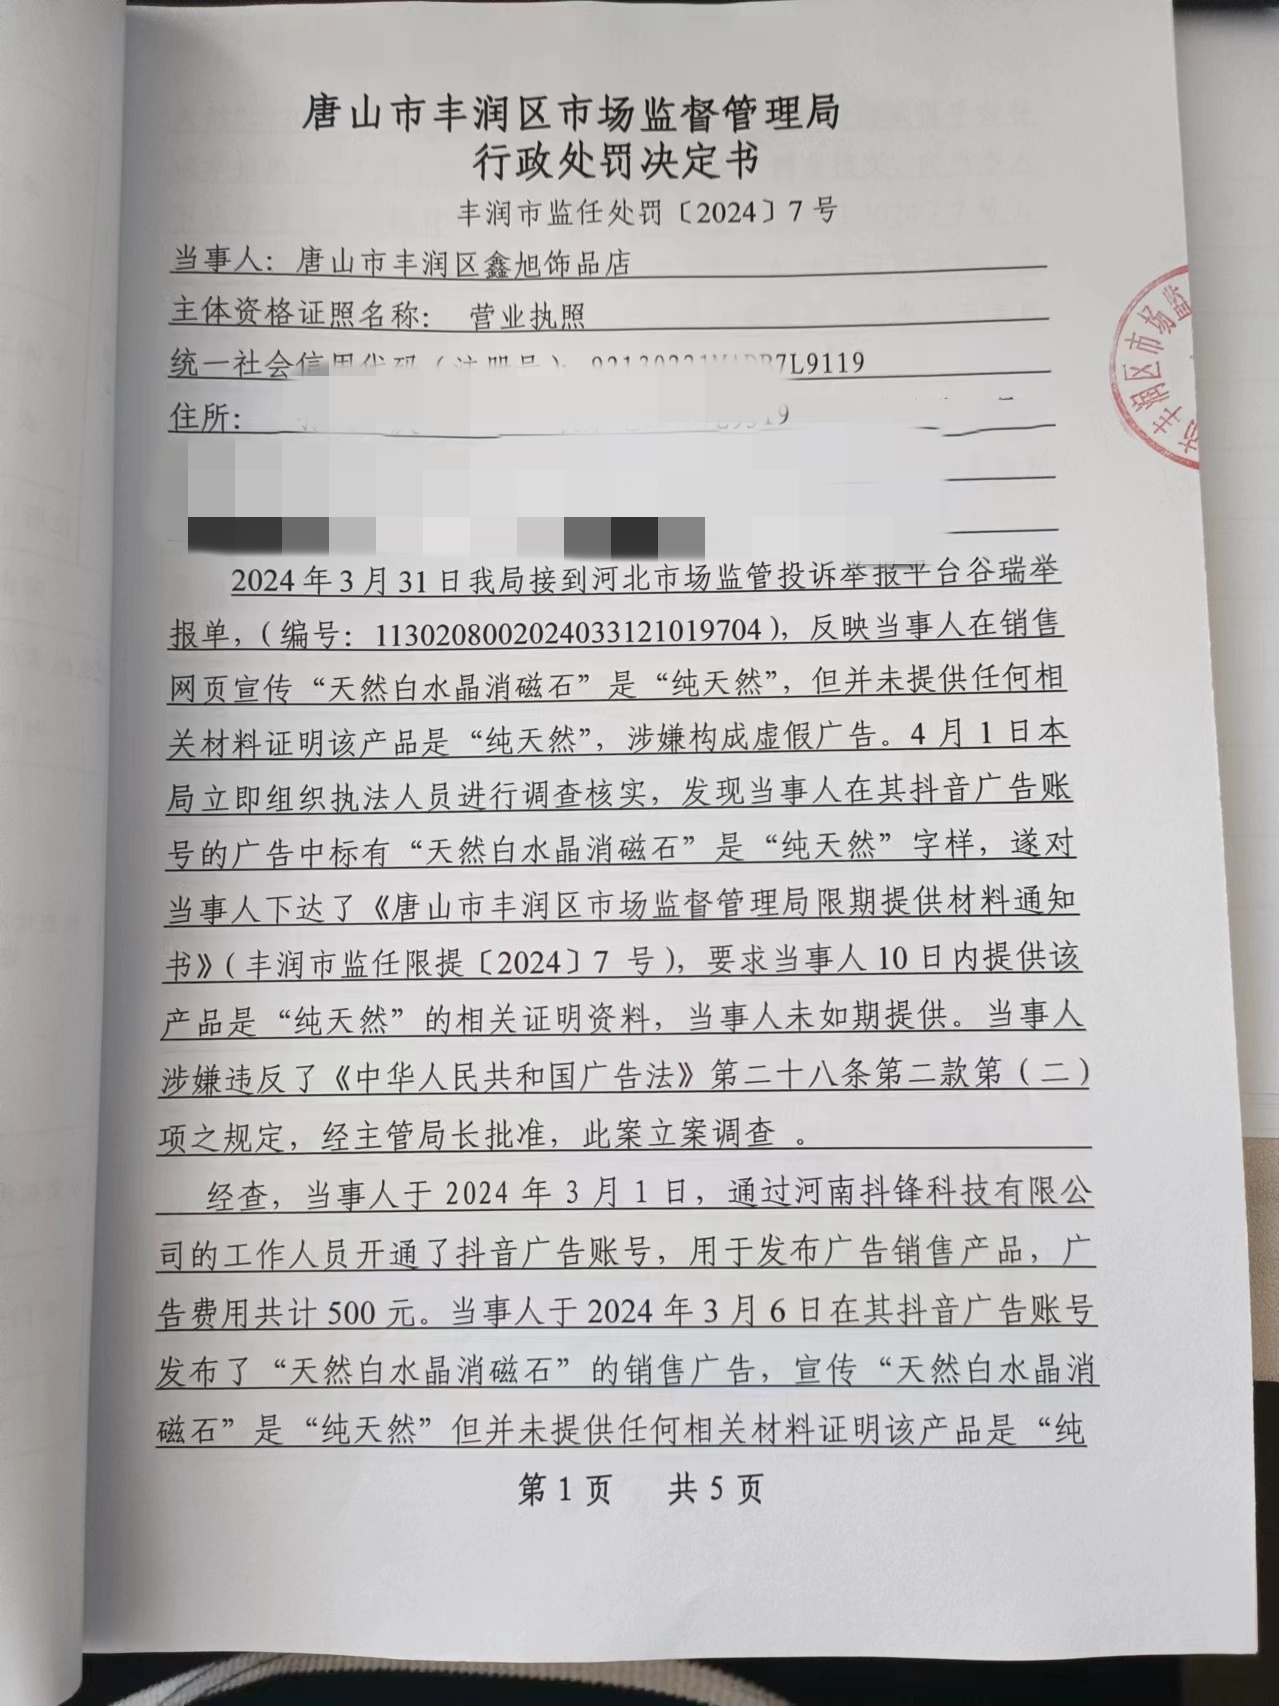 唐山市丰润区市场监督管理局
行政处罚决定书
丰润市监任处罚〔2024〕7号
当事人：唐山市丰润区鑫旭饰品店
主体资格证照名称： 营业执照
统一社会信用代码（注册号）：92130221MADB7L9119
住所：
2024年3月31日我局接到河北市场监管投诉举报平台谷瑞举
报单，（编号：1130208002024033121019704），反映当事人在销售
网页宣传“天然白水晶消磁石”是“纯天然”，但并未提供任何相
关材料证明该产品是“纯天然”，涉嫌构成虚假广告。4月1日本
局立即组织执法人员进行调查核实，发现当事人在其抖音广告账
号的广告中标有“天然白水晶消磁石”是“纯天然”字样，遂对
当事人下达了《唐山市丰润区市场监督管理局限期提供材料通知
书》（丰润市监任限提〔2024〕7 号），要求当事人10日内提供该
产品是“纯天然”的相关证明资料，当事人未如期提供。当事人
涉嫌违反了《中华人民共和国广告法》第二十八条第二款第（二）
项之规定，经主管局长批准，此案立案调查 。
经查，当事人于2024年3月1日，通过河南抖锋科技有限公
司的工作人员开通了抖音广告账号，用于发布广告销售产品，广
告费用共计500元。当事人于2024年3月6日在其抖音广告账号
发布了“天然白水晶消磁石”的销售广告，宣传“天然白水晶消
磁石”是“纯天然”但并未提供任何相关材料证明该产品是“纯
第1页 共5页
市丰润区市场监